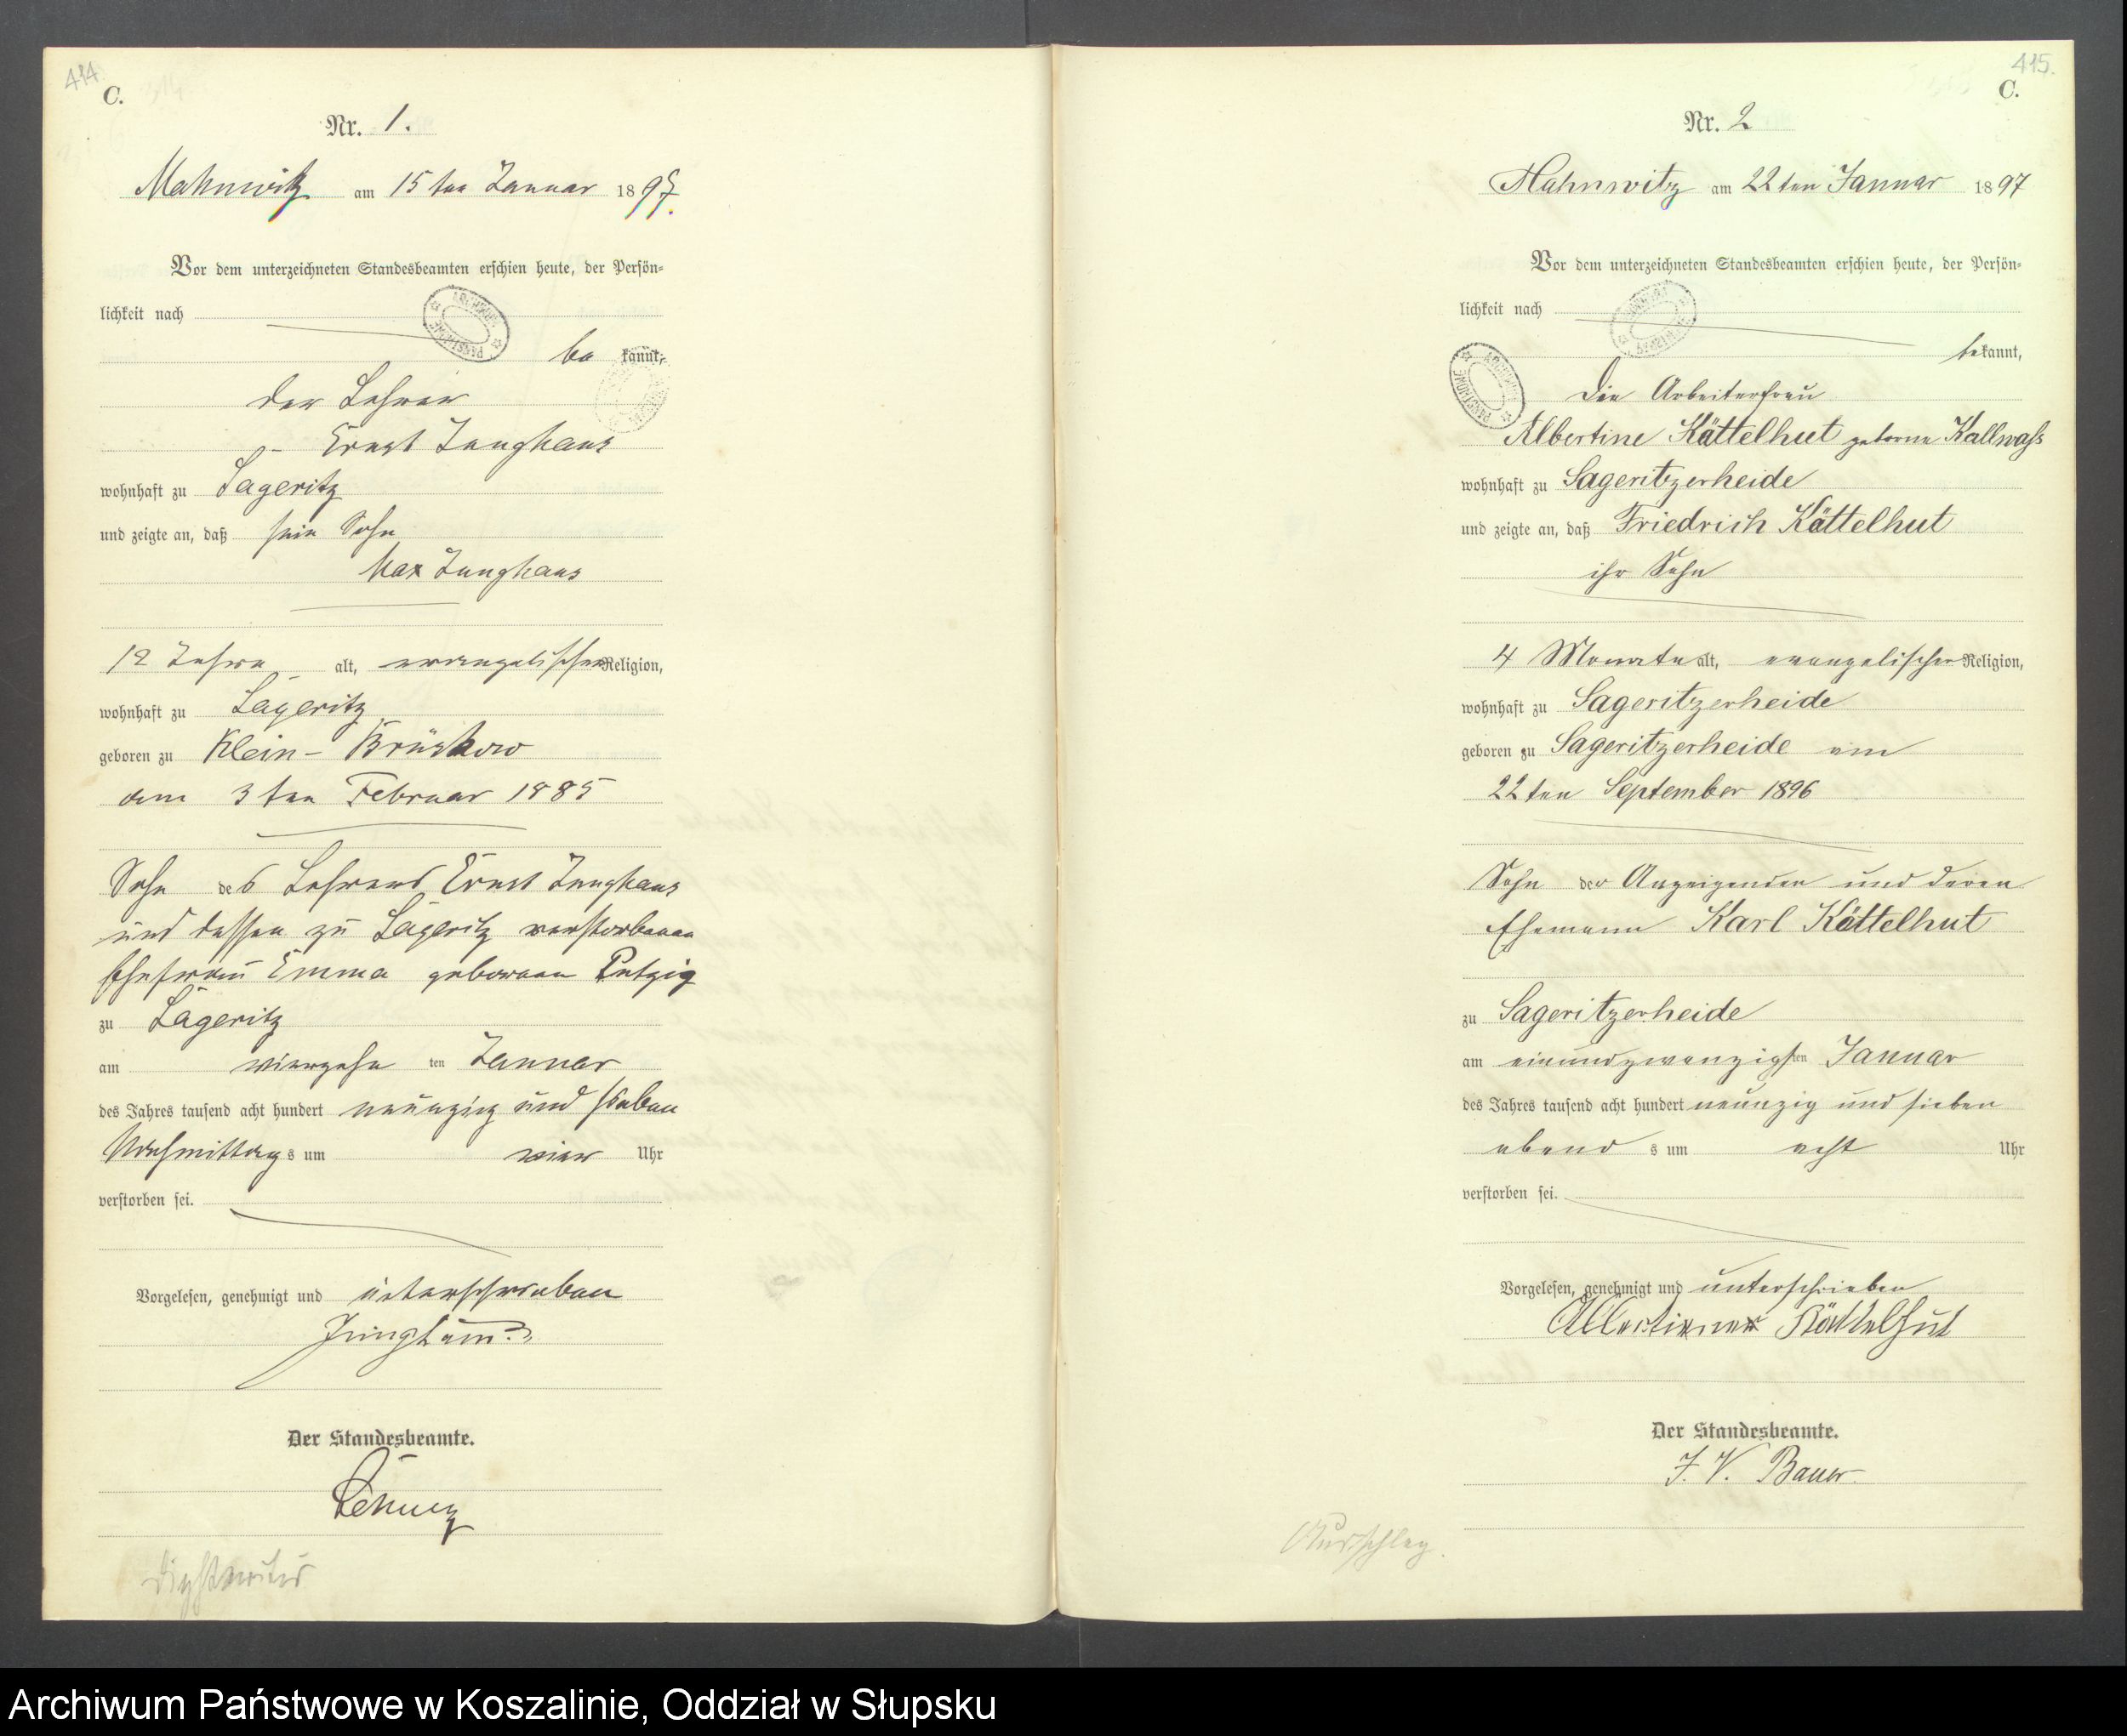 414
C.
Nr. 1.
Mahnwitz am 15ten Januar 1897.
Vor dem unterzeichneten Standesbeamten erschien heute, der Persön-
lichkeit nach
be kannt,
der Lehrer
Ernst Junghans
wohnhaft zu Sageritz
und zeigte an, daß sein Sohn
Max Junghans
12 Jahre alt, evangelischer Religion,
wohnhaft zu Sageritz
geboren zu Klein-Brüskow
am 3ten Februar 1885
Sohn des Lehrers Ernst Junghans
und dessen zu Sageritz verstorbenen
Ehefrau Emma geborenen Petzig
zu Sageritz
am vierzehn ten Januar
des Jahres tausend acht hundert neunzig und sieben
Nachmittags um vier Uhr
verstorben sei.
Vorgelesen, genehmigt und unterschrieben
Junghans
Der Standesbeamte.
415.
C.
Nr. 2
Mahnwitz am 22ten Januar 1897
Vor dem unterzeichneten Standesbeamten erschien heute, der Persön-
lichkeit nach
bekannt,
die Arbeiterfrau
Albertine Köttelhut geborne Kallwaß
wohnhaft zu Sageritzerheide
und zeigte an, daß Friedrich Köttelhut
ihr Sohn
4 Monate alt, evangelischer Religion,
wohnhaft zu Sageritzerheide
geboren zu Sageritzerheide am
22ten September 1896
Sohn der Anzeigenden und deren
Ehemann Karl Köttelhut
zu Sageritzerheide
am einundzwanzigsten Januar
des Jahres tausend acht hundert neunzig und sieben
abends um acht Uhr
verstorben sei.
Vorgelesen, genehmigt und unterschrieben
Albertine Köttelhut
Der Standesbeamte.
J. V. Bauer
Ausschlag.
Archiwum Państwowe w Koszalinie, Oddział w Słupsku